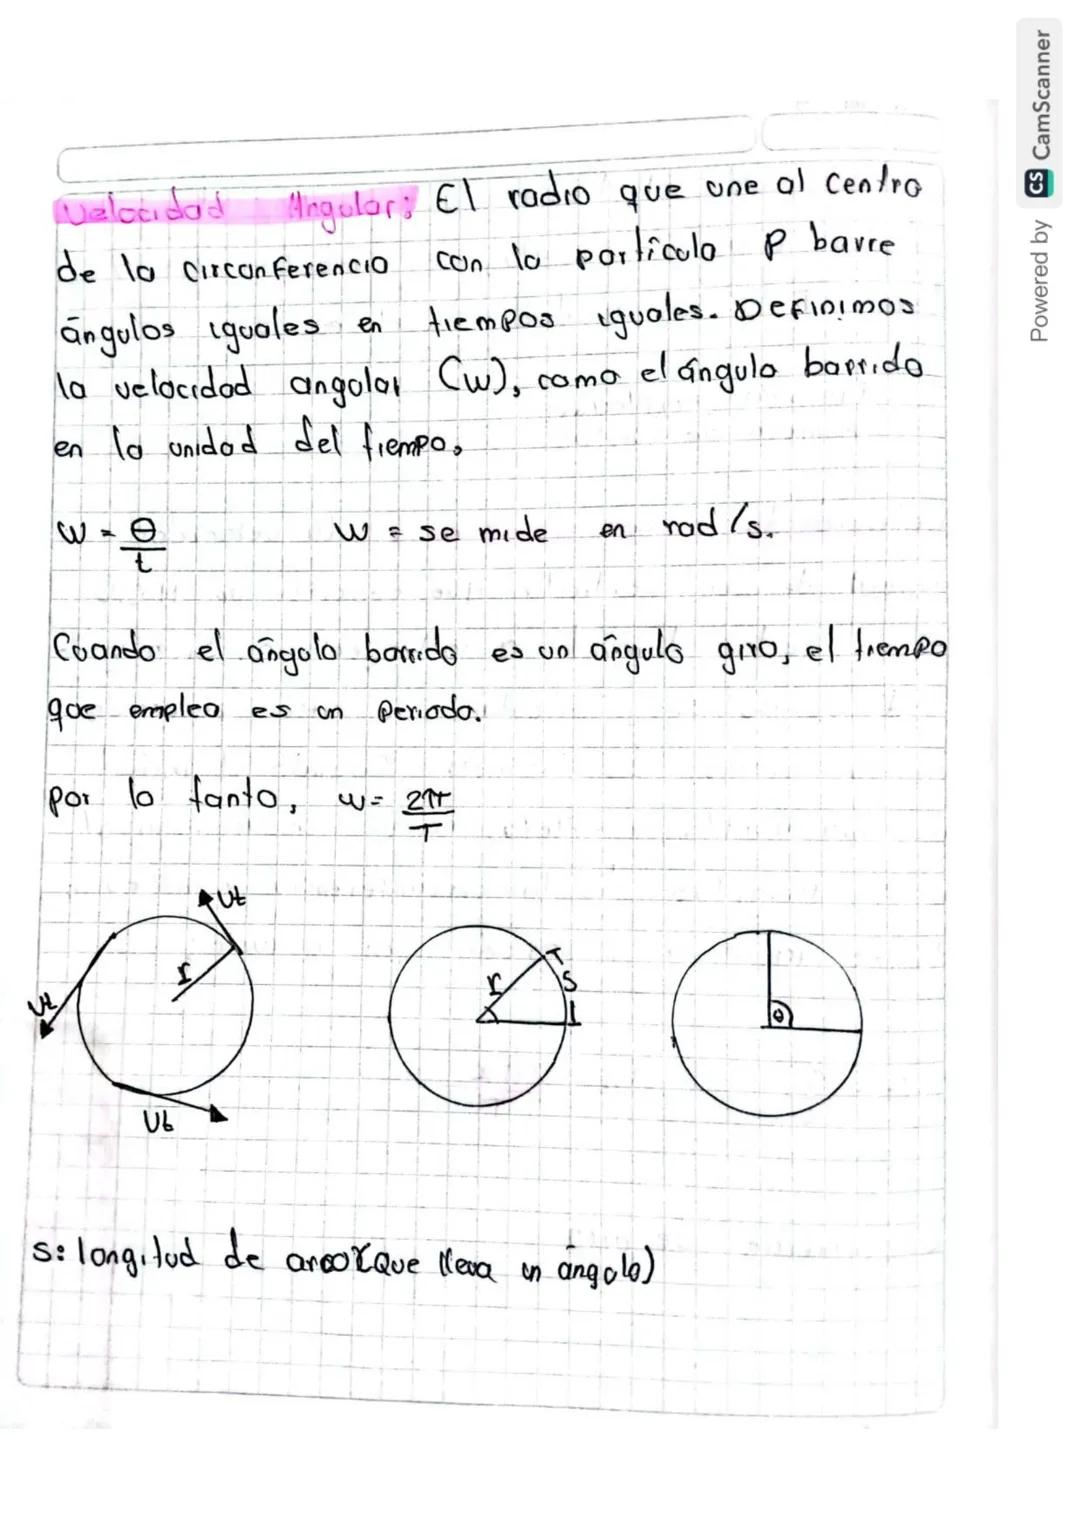 Velocidad Angular: El radio que une al centro
de la circunferencia con la partícula P barre
ángulos iguales en tiempos iguales. Definimos
la velocidad angular (w), como el ángulo barrido
en la unidad del tiempo.
w = θ/t w = se mide en rad/s.
Cuando el ángulo barrido es un ángulo giro, el tiempo
que emplea es un periodo.
por lo tanto, w = 2π/T
Vt
r
Vt
Vt
r
S
θ
S: longitud de arco (Que lleva un ángulo)
Powered by CS CamScanner